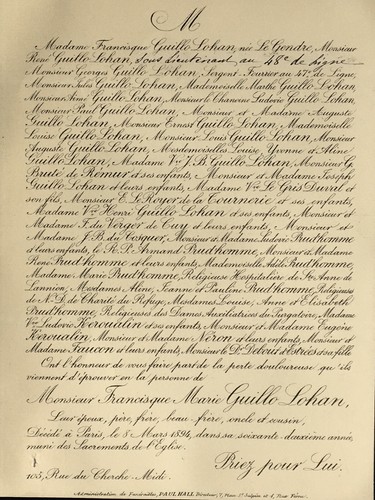 M
Madame Francisque Guillo Lohan, née Le Gendre, Monsieur
René Guillo Lohan, Sous Lieutenant au 48e de Ligne
Monsieur Georges Guillo Lohan, Sergent Fourrier au 47e de Ligne,
Monsieur Jules Guillo Lohan, Mademoiselle Marthe Guillo Lohan,
Monsieur Aimé Guillo Lohan, Monsieur le Chanoine Ludovic Guillo Lohan,
Monsieur Paul Guillo Lohan, Monsieur et Madame Auguste
Guillo Lohan, Monsieur Ernest Guillo Lohan, Mademoiselle
Louise Guillo Lohan, Monsieur Louis Guillo Lohan, Monsieur
Auguste Guillo Lohan, Mesdemoiselles Louise, Yvonne et Aline
Guillo Lohan, Madame Vve J.B. Guillo Lohan, Monsieur G.
Bruté de Rémur et ses enfants, Monsieur et Madame Joseph
Guillo Lohan et leurs enfants, Madame Vve Le Gris Duval et
son fils, Monsieur E. Le Royer de la Tournerie et ses enfants,
Madame Vve Henri Guillo Lohan et ses enfants, Monsieur et
Madame F. du Verger de Cuy et leurs enfants, Monsieur et
Madame J.B. du Cosquer, Monsieur et Madame Ludovic Prud'homme
et leurs enfants, le R.P. Armand Prud'homme, Monsieur et Madame
René Prud'homme et leurs enfants, Mademoiselle Adèle Prud'homme,
Madame Marie Prud'homme, Religieuse Hospitalière de Ste Anne de
Lannion, Mesdames Aline, Jeanne et Pauline Prud'homme, Religieuses
de N.D. de Charité du Refuge, Mesdames Louise, Anne et Elisabeth
Prud'homme, Religieuses des Dames Auxiliatrices du Purgatoire, Madame
Vve Ludovic Keroualin et ses enfants, Monsieur et Madame Eugène
Keroualin, Monsieur et Madame Néron et leurs enfants, Monsieur et
Madame Faucon et leurs enfants, Monsieur le Dr et sa fille
Ont l'honneur de vous faire part de la perte douloureuse qu'ils
viennent d'éprouver en la personne de
Monsieur Francisque Marie Guillo Lohan,
Leur époux, père, frère, beau-frère, oncle et cousin,
Décédé à Paris, le 8 Mars 1894, dans sa soixante-deuxième année,
muni des Sacrements de l'Eglise.
Priez pour Lui.
105, Rue du Cherche-Midi.
Administration de Funérailles, PAUL HALL Directeur, 7, Place St Sulpice et 1, Rue Férou.